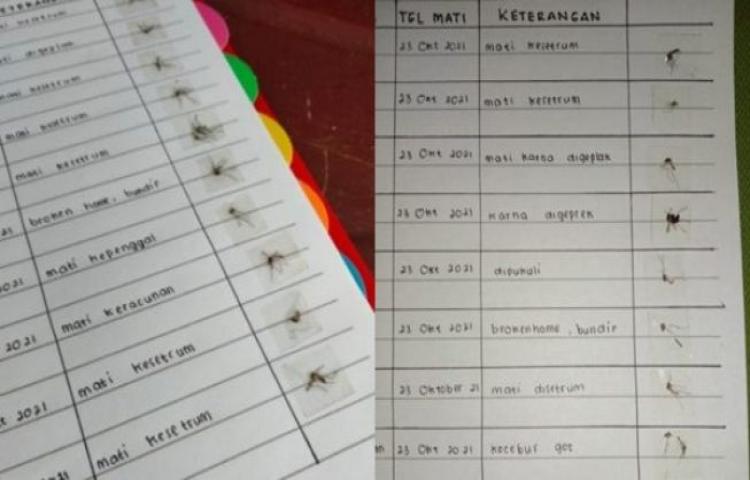 digeplak
mati kesetrum
mati kesetrum
mati kesetrum
21 broken home, bundir
2021 mati kepenggal
2021 mati keracunan
2021 mati kesetrum
2021 mati kesetrum
TGL MATI KETERANGAN
23 Okt 2021 mati kesetrum
23 Okt 2021 mati kesetrum
23 Okt 2021 mati karna digeplak
23 Okt 2021 karna digeprek
23 Okt 2021 dipukuli
23 Okt 2021 brokenhome, bundir
23 Oktober 21 mati disetrum
23 Okt 2021 kecebur got